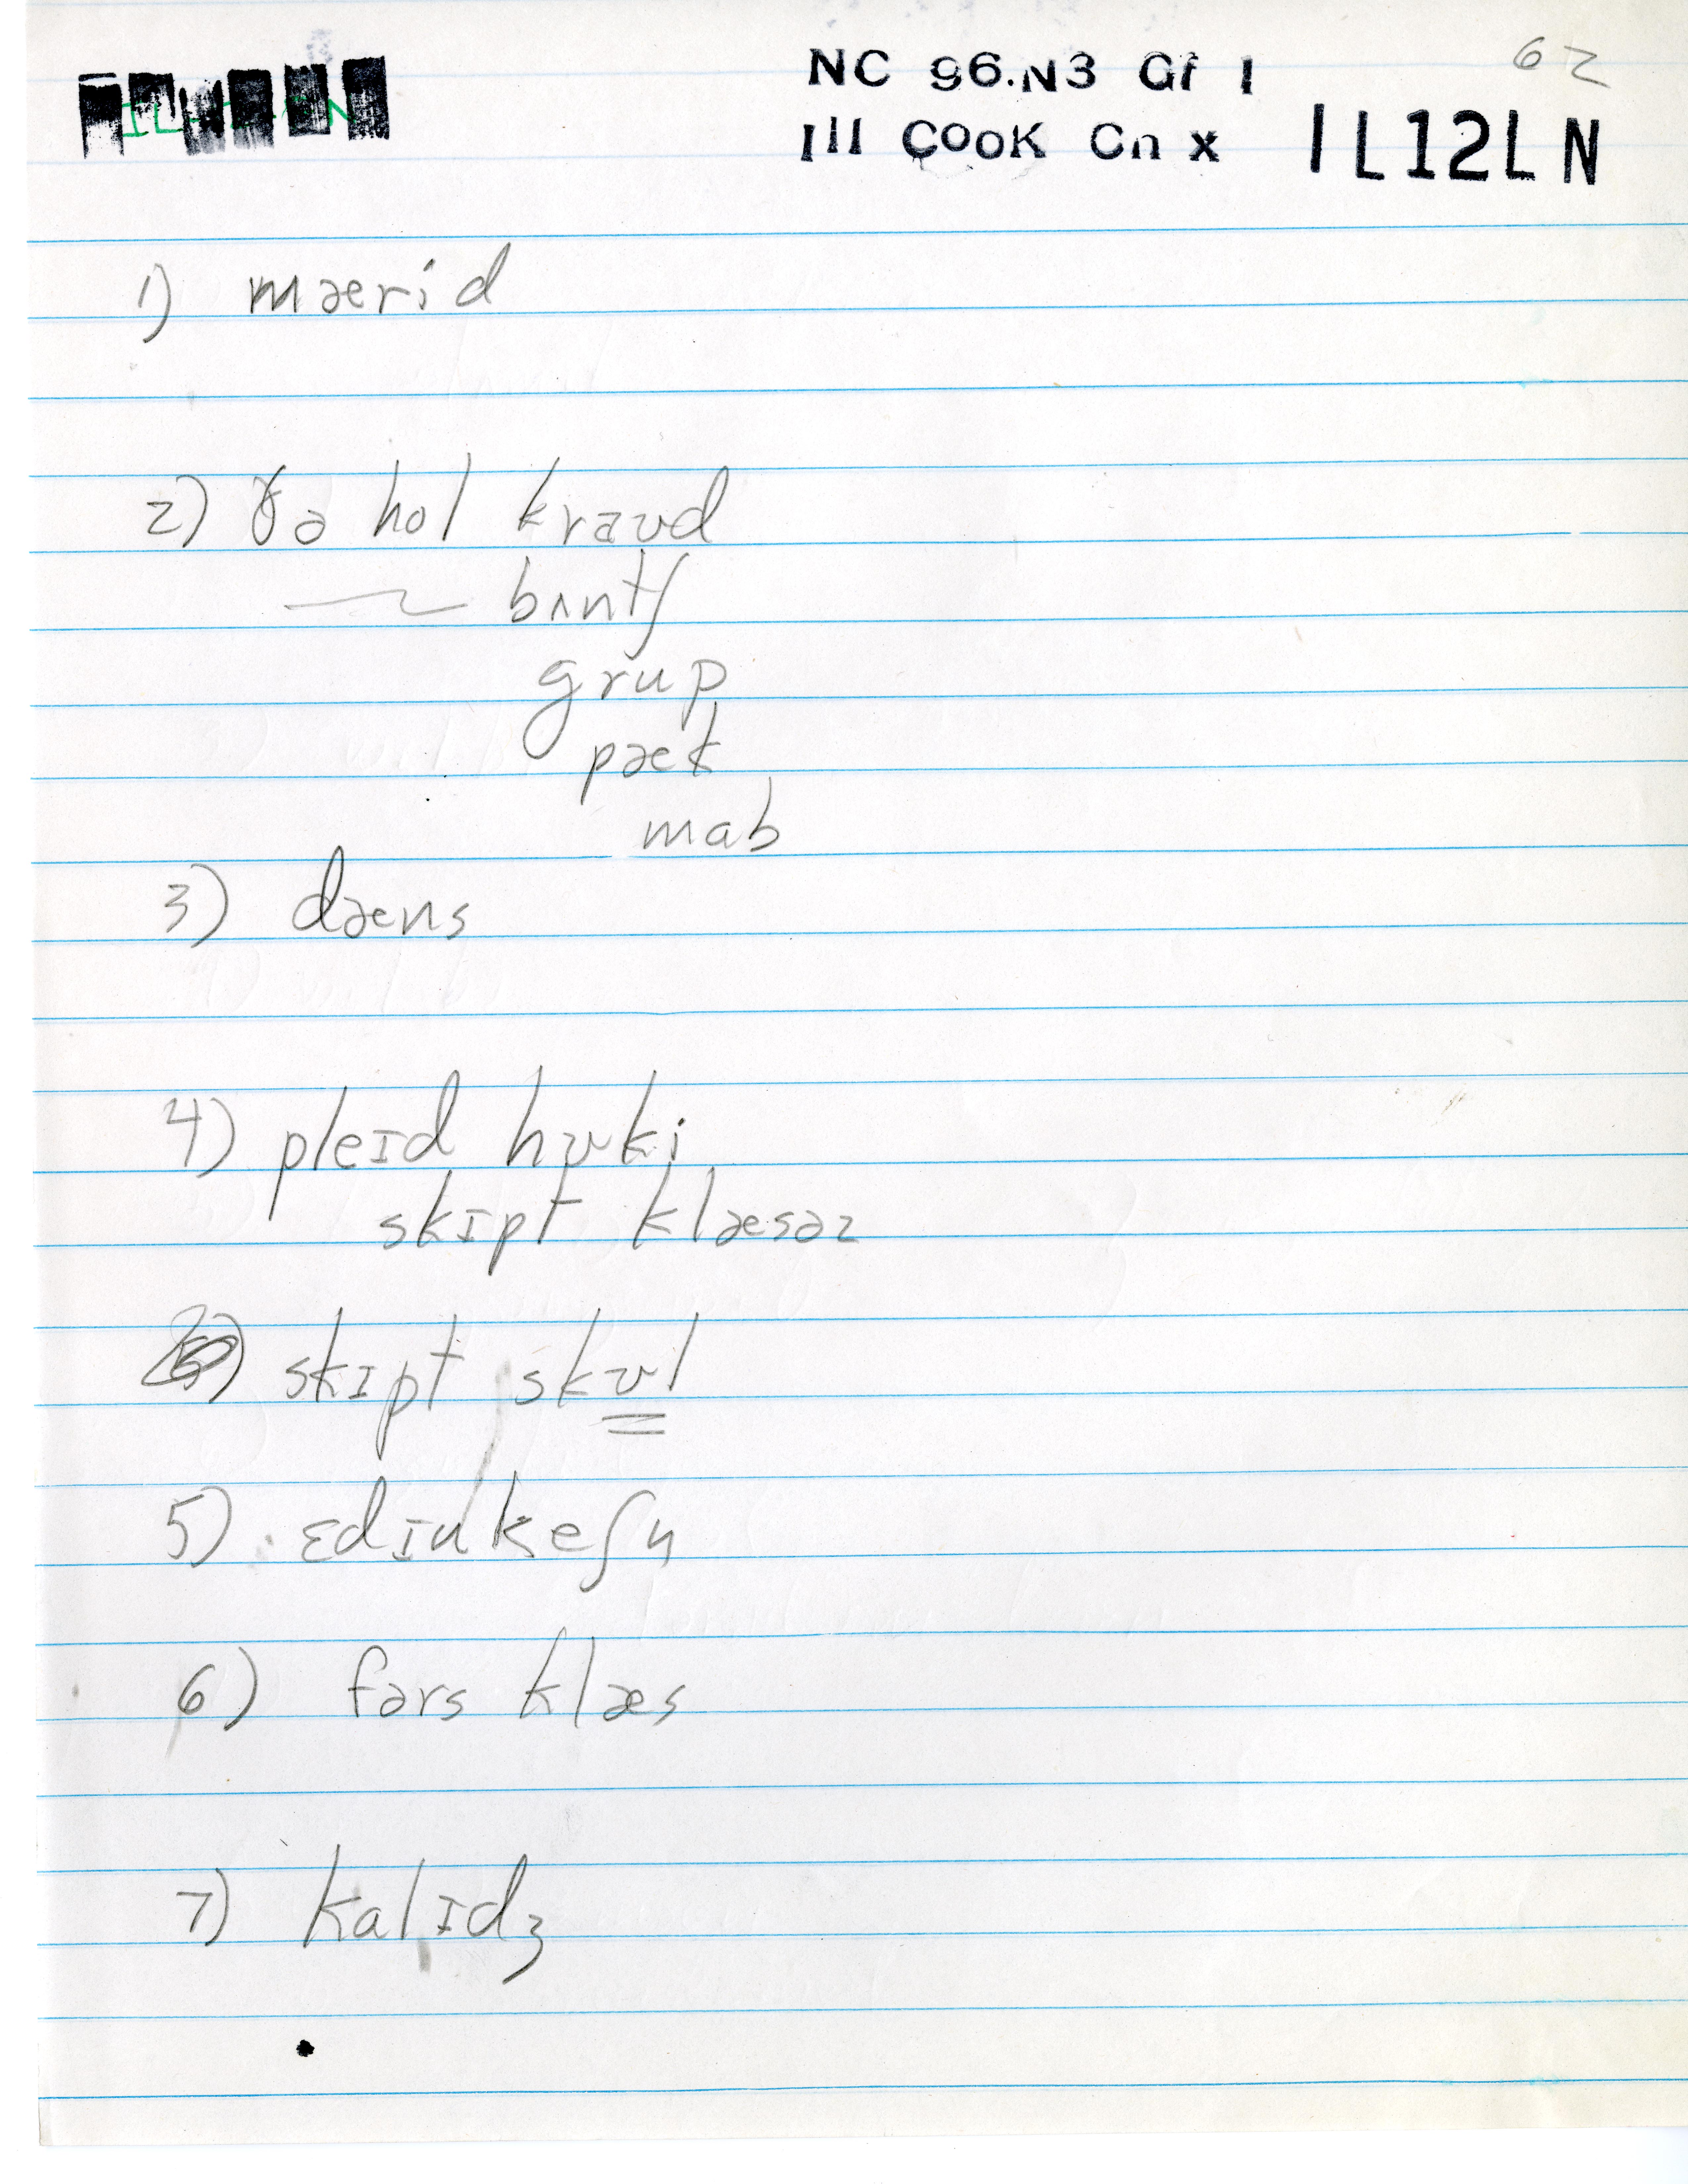 NC 96.N3 Gf 1
62
Ill COOK Cn x
IL12LN
1) mærid
2) ðə hol kraʊd
bʌntʃ
grup
pæk
mab
3) dæns
4) pleɪd hʊki
skɪpt klæsəz
skɪpt skʊl
5) ɛdɪukeʃn
6) fərs klæs
7) kalɪdʒ